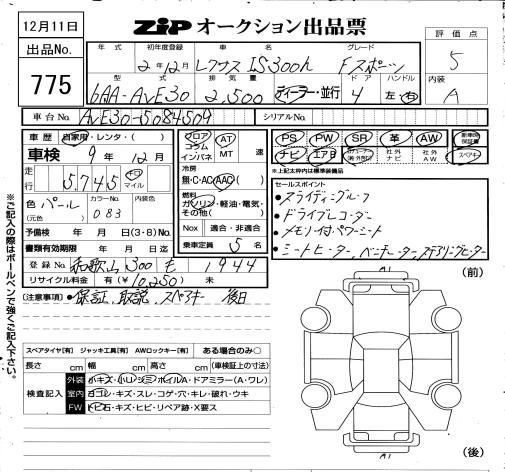 12月11日
ZiP オークション出品票
出品No.
775
評価点
5
内装
A
年式 初年度登録 車名 グレード
2年12月 レクサス IS300h Fスポーツ
型式 排気量 ドア ハンドル
6AA-AVE30 2,500 ディーラー・並行 4 左・右
車台No. AVE30-5084509 シリアルNo.
車歴 自家用・レンタ・( )
車検 9年12月
走行 5,745 km マイル
色 パール
(元色)
カラーNo. 083
内装色
予備検 年 月 日(3・8)No.
書類有効期限 年 月 日迄
登録No. 和歌山 300 も 1944
リサイクル料金 有(¥10,250) 未
フロア コラム インパネ
AT MT 速
冷房
無・C・AC・AAC
燃料
ガソリン・軽油・電気・その他( )
Nox 適合・非適合
乗車定員 5名
PS PW SR 革 AW 新車時保証書
ナビ エアB 社外ナビ 社外AW スペアキー
*上記太枠内は標準装備品
セールスポイント
・スライディングルーフ
・ドライブレコーダー
・メモリ付パワーシート
・シートヒーター、ベンチレーター、ステアリングヒーター
(注意事項)・保証、取説、スペアキー 後日
スペアタイヤ[有] ジャッキ工具[有] AWロックキー[有] ある場合のみ○
長さ cm 幅 cm 高さ cm (車検証上の寸法)
検査記入
外装 小キズ・小凹・シミ・ホイルA・ドアミラー(A・ワレ)
室内 ヨゴレ・キズ・スレ・コゲ・穴・キレ・破れ・ウキ
FW トビ石・キズ・ヒビ・リペア跡・X要ス
(前)
(後)
※ご記入の際はボールペンで強くご記入下さい。